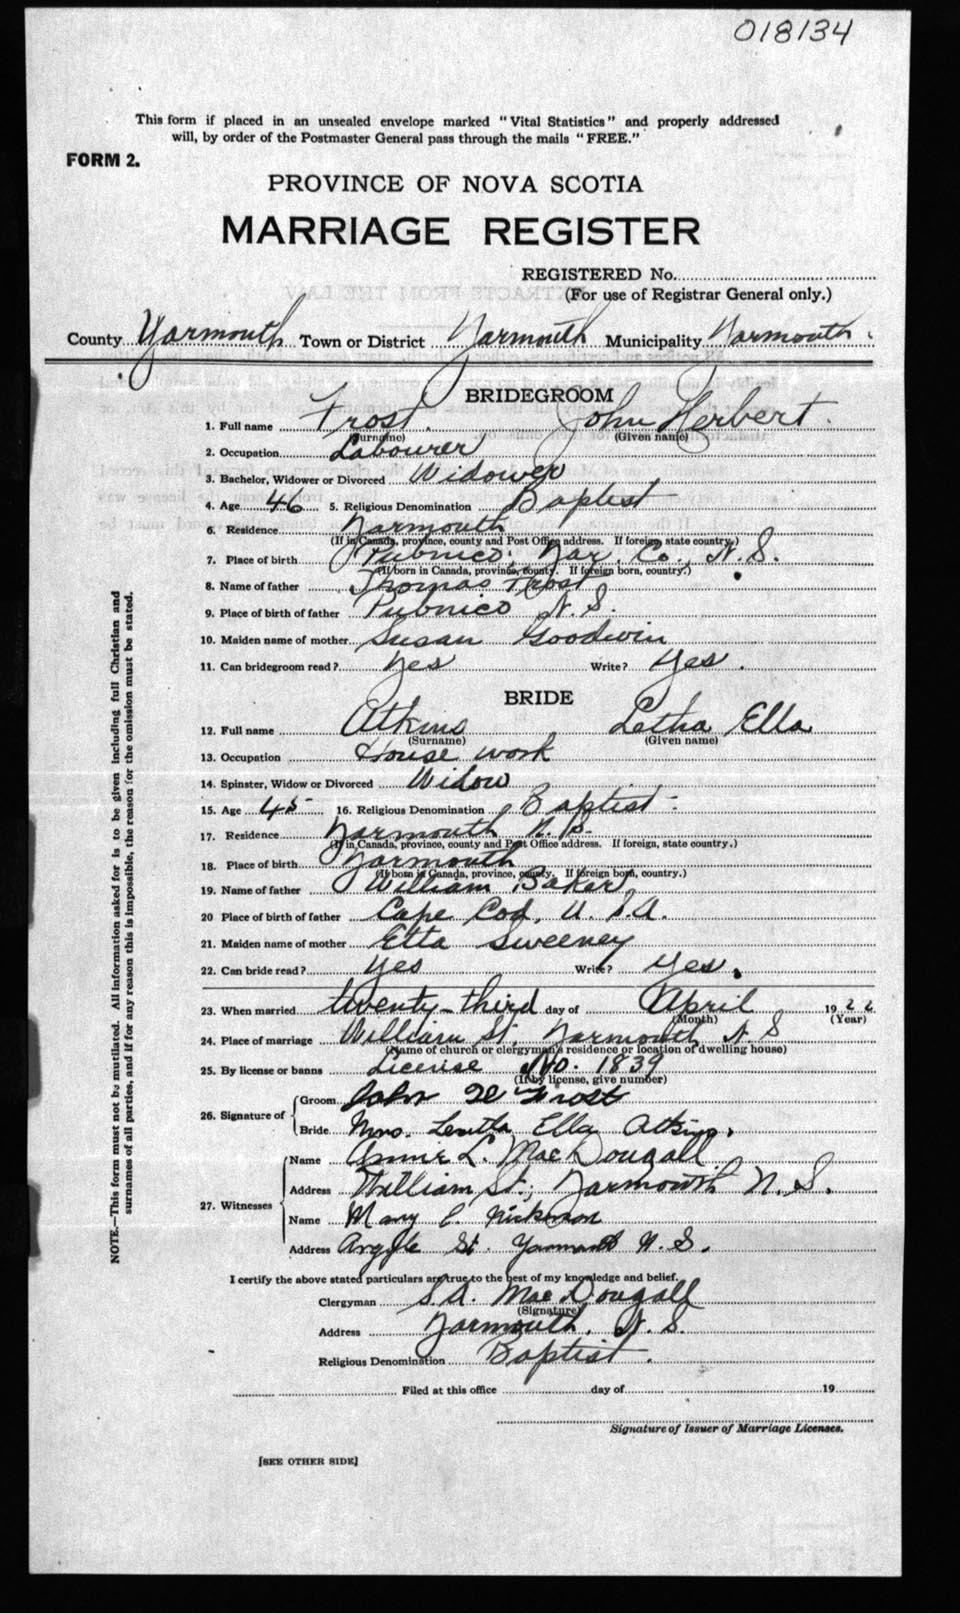 018134
This form if placed in an unsealed envelope marked "Vital Statistics" and properly addressed
will, by order of the Postmaster General pass through the mails "FREE."
FORM 2.
PROVINCE OF NOVA SCOTIA
MARRIAGE REGISTER
REGISTERED No.
(For use of Registrar General only.)
County Yarmouth Town or District Yarmouth Municipality Yarmouth
BRIDEGROOM
1. Full name Frost. John Herbert.
(Surname) (Given name)
2. Occupation Labourer
3. Bachelor, Widower or Divorced Widower
4. Age 46 5. Religious Denomination Baptist
6. Residence Yarmouth
(If in Canada, province, county and Post Office address. If foreign, state country.)
7. Place of birth Pubnico, Yar. Co., N.S.
(If born in Canada, province, county. If foreign born, country.)
8. Name of father Thomas Frost
9. Place of birth of father Pubnico N.S.
10. Maiden name of mother Susan Goodwin
11. Can bridegroom read? Yes Write? Yes.
BRIDE
12. Full name Atkins Letha Ella
(Surname) (Given name)
13. Occupation House work
14. Spinster, Widow or Divorced Widow
15. Age 45 16. Religious Denomination Baptist
17. Residence Yarmouth N.S.
(If in Canada, province, county and Post Office address. If foreign, state country.)
18. Place of birth Yarmouth
(If born in Canada, province, county. If foreign born, country.)
19. Name of father William Baker
20 Place of birth of father Cape Cod, U.S.A.
21. Maiden name of mother Etta Sweeney
22. Can bride read? Yes Write? Yes.
23. When married twenty-third day of April 1922
(Month) (Year)
24. Place of marriage William St, Yarmouth N S
(Name of church or clergyman's residence or location of dwelling house)
25. By license or banns License No. 1839
(If by license, give number)
26. Signature of
Groom John H Frost
Bride Mrs. Leutha Ella Atkins.
27. Witnesses
Name Annie L. MacDougall
Address William St., Yarmouth N.S.
Name Mary E. Nickerson
Address Argyle St. Yarmouth N.S.
I certify the above stated particulars are true to the best of my knowledge and belief.
Clergyman S.A. MacDougall
(Signature)
Address Yarmouth, N.S.
Religious Denomination Baptist.
Filed at this office day of 19
Signature of Issuer of Marriage Licenses.
[SEE OTHER SIDE]
NOTE.—This form must not be mutilated. All information asked for is to be given including full Christian and
surnames of all parties, and if for any reason this is impossible, the reason for the omission must be stated.